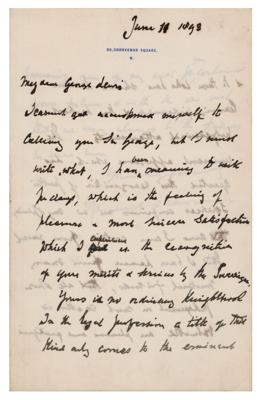 June 10 1893
50, GROSVENOR SQUARE,
W.
My dear George Lewis
I cannot get accustomed myself to
calling you Sir George, but I must
write, what, I have been meaning to write
for days, which is the feeling of
pleasure & most sincere satisfaction
which I feel experience in the recognition
of your merits & services by the Sovereign
Yours is no ordinary Knighthood
In the legal profession a title of that
kind only comes to the eminent